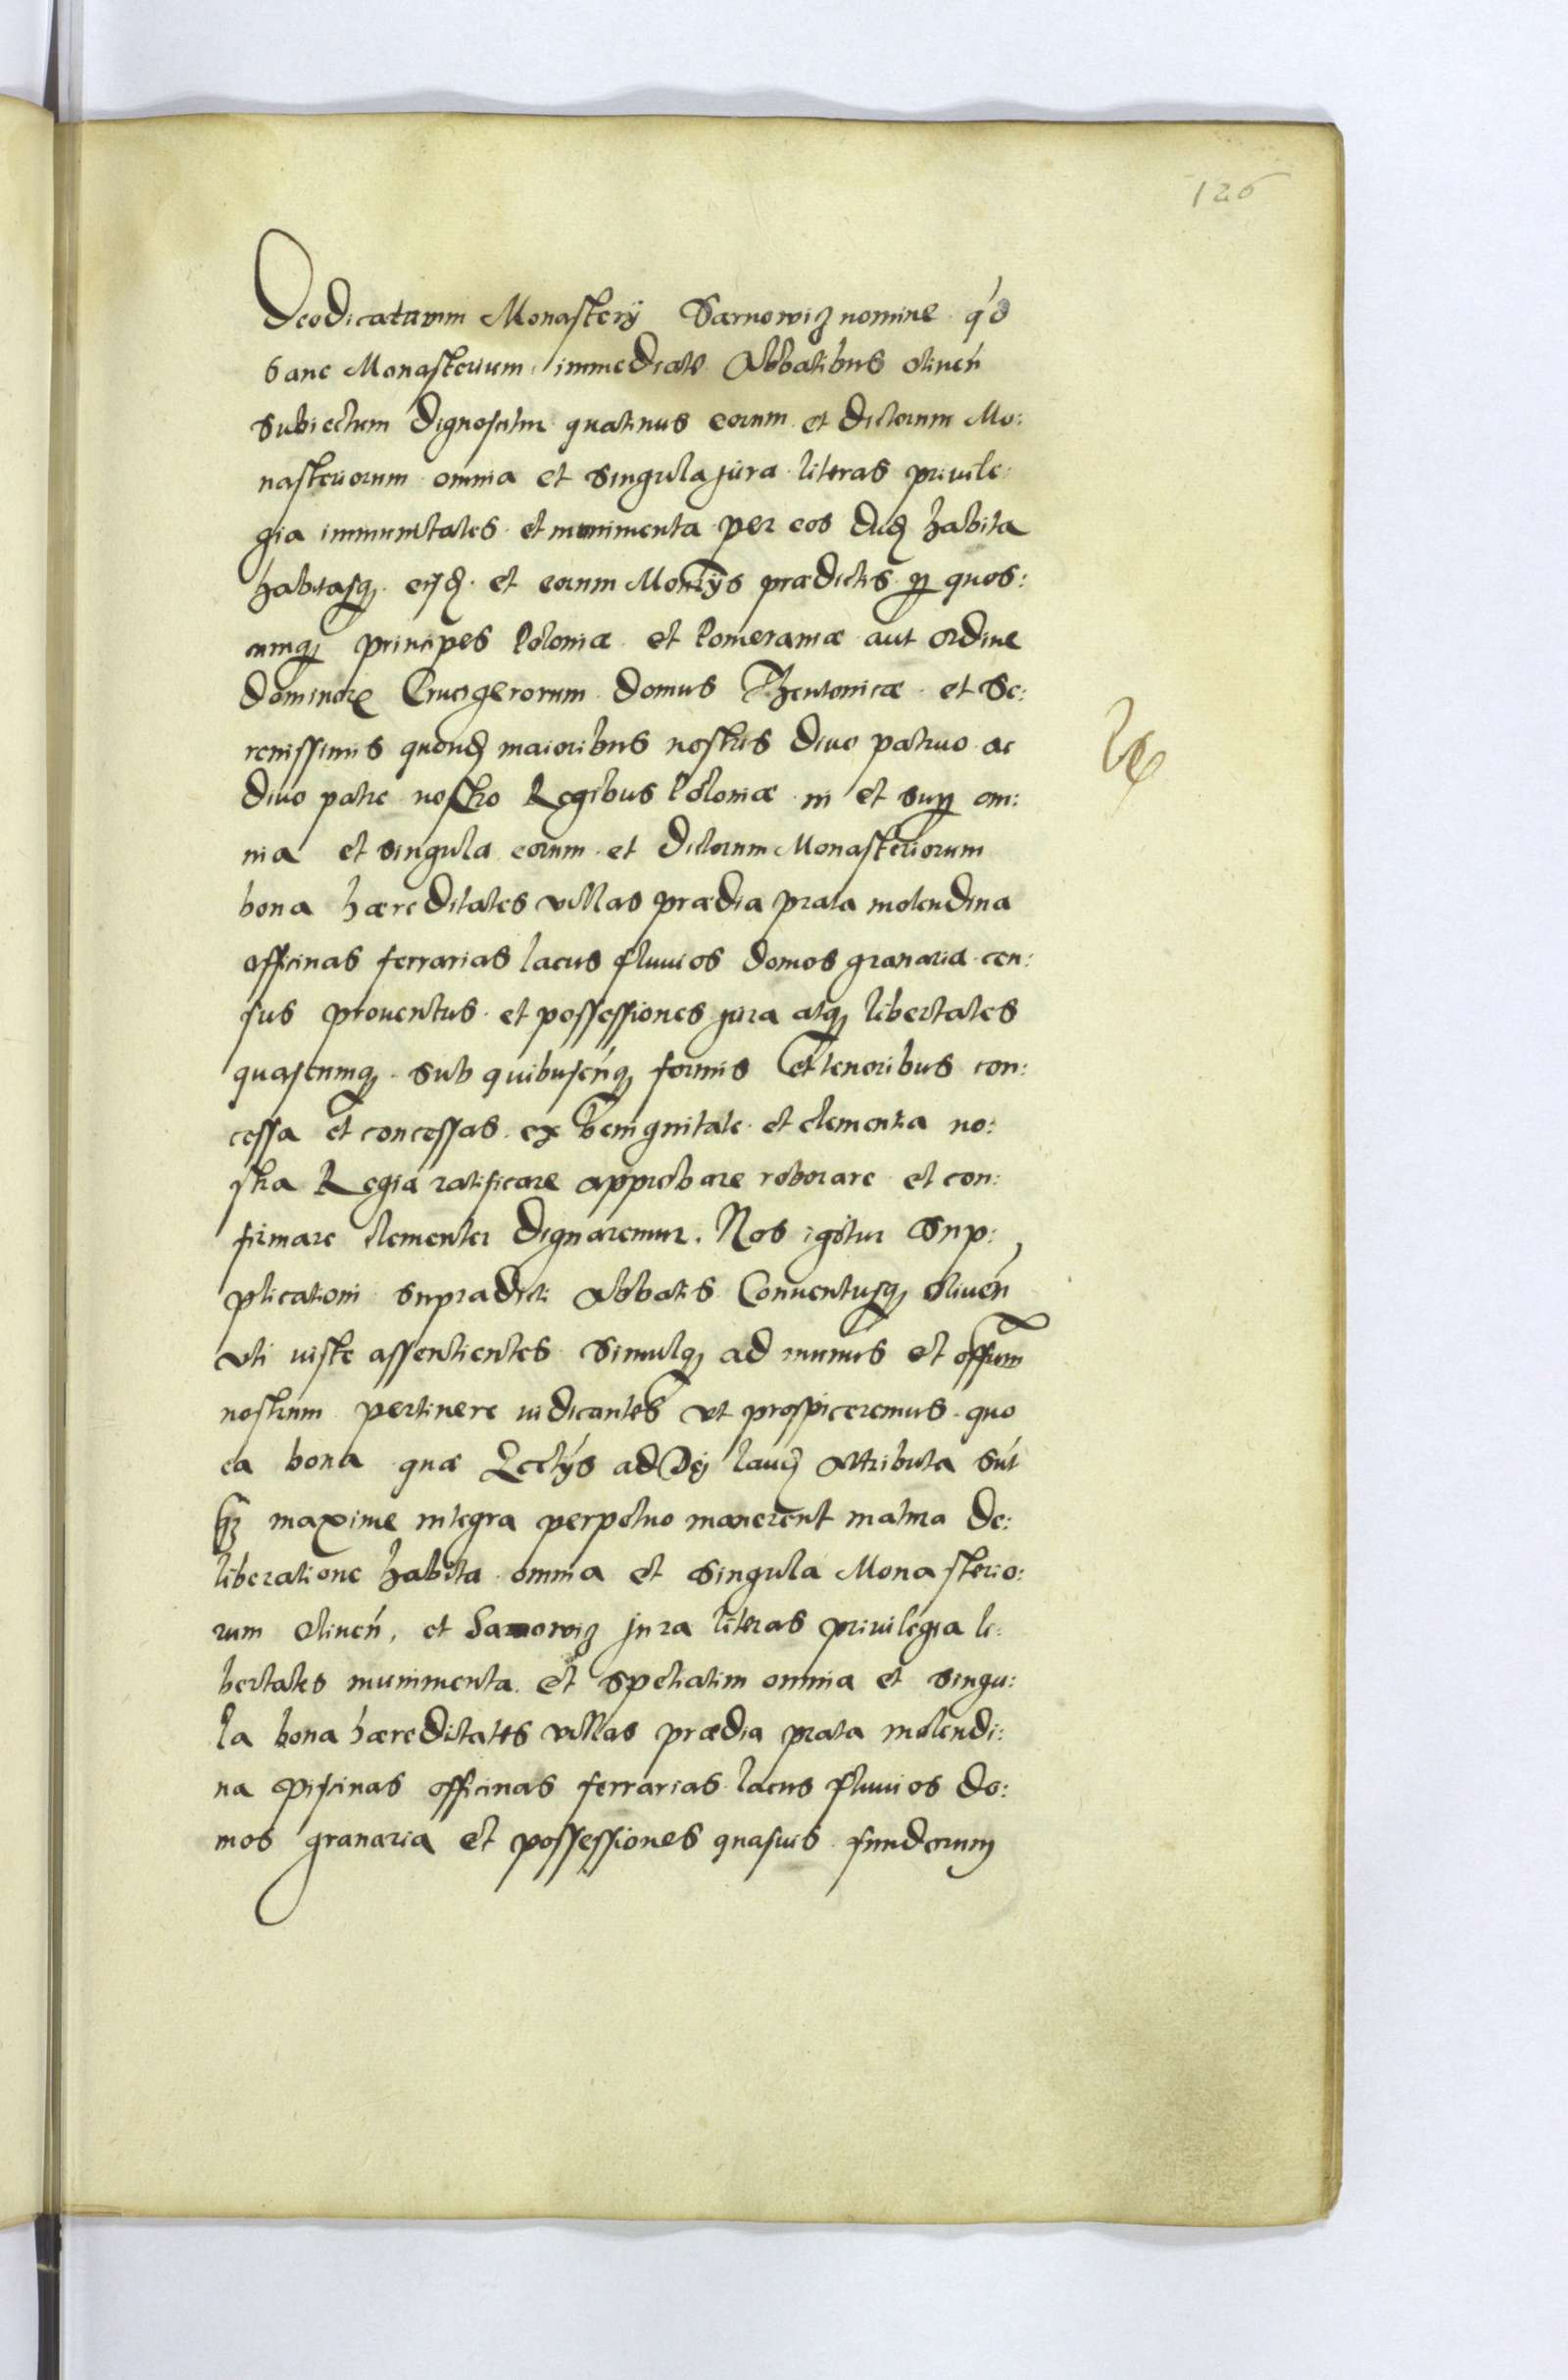 126
Deodicatarum Monasterÿ Sarnowiz nomine q'd
sane Monasterium immediate Abbatibus oliueń
subiectum dignoscitur quatinus eorum et dictorum Mo:
nasteriorum omnia et singula jura literas priuile:
gia immunitates et munimenta per eos dudʒ habita
habitasqʒ eisdʒ et eorum Montÿs prædictis ꝑ quos:
cumqʒ principes Poloniæ et Pomeraniæ aut ordine
dominoꝝ Crucigerorum domus Theutonicæ et Se:
renissimis quondʒ maioribus nostris diuo patruo ac
diuo patre nostro Regibus Poloniæ in et supꝑ om:
nia et singula eorum et dictorum Monasteriorum
bona hæreditates villas prædia prata molendina
officinas ferrarias lacus fluuios domos granaria cen:
sus prouentus et possessiones jura atqʒ libertates
quascumqʒ sub quibuscńqʒ formis et tenoribus con:
cessa et concessas ex benignitate et clementia no:
stra Regia ratificare approbare roborare et con:
firmare clementer dignaremur. Nos igitur Sup:
plicationi supradicti Abbatis Conuentusqʒ Oliueń
vti iuste assentientes simulqʒ ad munus et offium
nostrum pertinere iudicantes vt prospiceremus quo
ea bona quæ Ecclÿs ad Dej laudʒ attributa sút
qʒ maxime integra perpetuo manerent matura de:
liberatione habita omnia et singula Monasterio:
rum Oliueń, et Sarnowiz jura literas priuilegia li:
bertates munimenta et spetiatim omnia et singu:
la bona hæreditates villas prædia prata molendi:
na piscinas officinas ferrarias lacus fluuios do:
mos granaria et possessiones quasuis fundorum